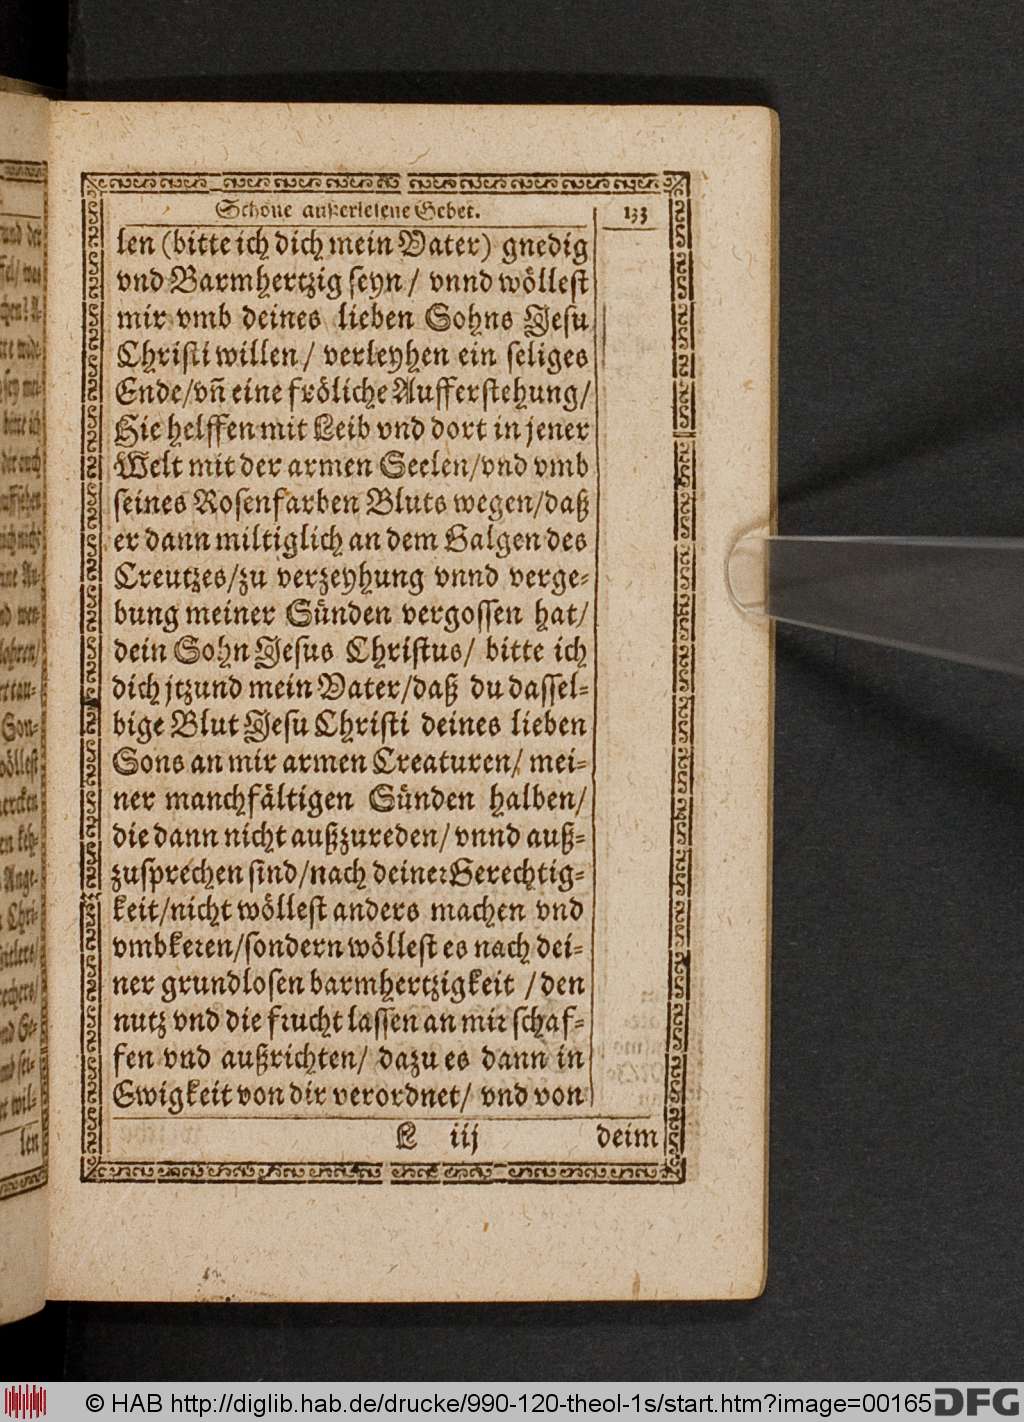 Schöne außerlesene Gebet.
133
len (bitte ich dich mein Vater) gnedig
vnd Barmhertzig seyn / vnnd wöllest
mir vmb deines lieben Sohns Jesu
Christi willen / verleyhen ein seliges
Ende/vñ eine fröliche Aufferstehung/
Hie helffen mit Leib vnd dort in jener
Welt mit der armen Seelen/vnd vmb
seines Rosenfarben Bluts wegen/daß
er dann miltiglich an dem Galgen des
Creutzes/zu verzeyhung vnnd verge-
bung meiner Sünden vergossen hat/
dein Sohn Jesus Christus/ bitte ich
dich jtzund mein Vater/daß du dassel-
bige Blut Jesu Christi deines lieben
Sons an mir armen Creaturen/ mei-
ner manchfältigen Sünden halben/
die dann nicht außzureden/ vnnd auß-
zusprechen sind/nach deiner Gerechtig-
keit/nicht wöllest anders machen vnd
vmbkeren/sondern wöllest es nach dei-
ner grundlosen barmhertzigkeit /den
nutz vnd die frucht lassen an mir schaf-
fen vnd außrichten/ dazu es dann in
Ewigkeit von dir verordnet/ vnd von
L iij
deim
len
© HAB http://diglib.hab.de/drucke/990-120-theol-1s/start.htm?image=00165
DFG